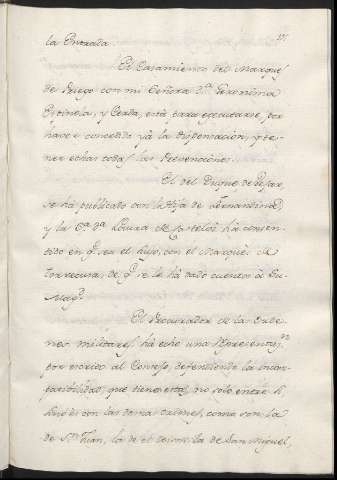 la Entrada.
El Casamiento del Marqués
de Priego con mi Señora D.ª Geronima
Espinola, y Cerda, está para ejecutarse, por
haverse concedido yà la Dispensacion, y te-
ner echas todas las Prevenciones.
El del Duque de Bejar,
se ha publicado con la Hija de Fernandina,
y la de Castelòs ha consen-
tido en q.e sea el hijo, con el Marquès de
Torrecusa, de q.e se le hà dado cuenta à Su
Mag.d
El Procurador de las Orde-
nes militares, hà echo una Representaz.on
por escrito al Consejo, defendiendo la incom-
patibilidad, que tienen estas, no solo entre si,
sino es con las demas como son la
de S.n Juan, la de el la de San Miguel,